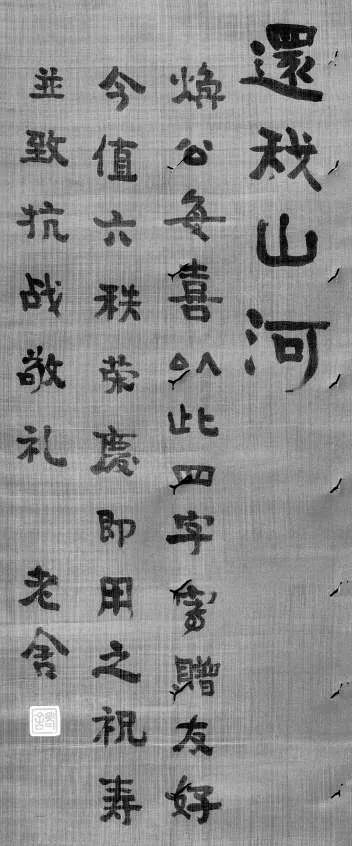 還我山河
煥公每喜以此四字書贈友好
今值六秩荣慶即用之祝寿
並致抗战敬礼 老舍